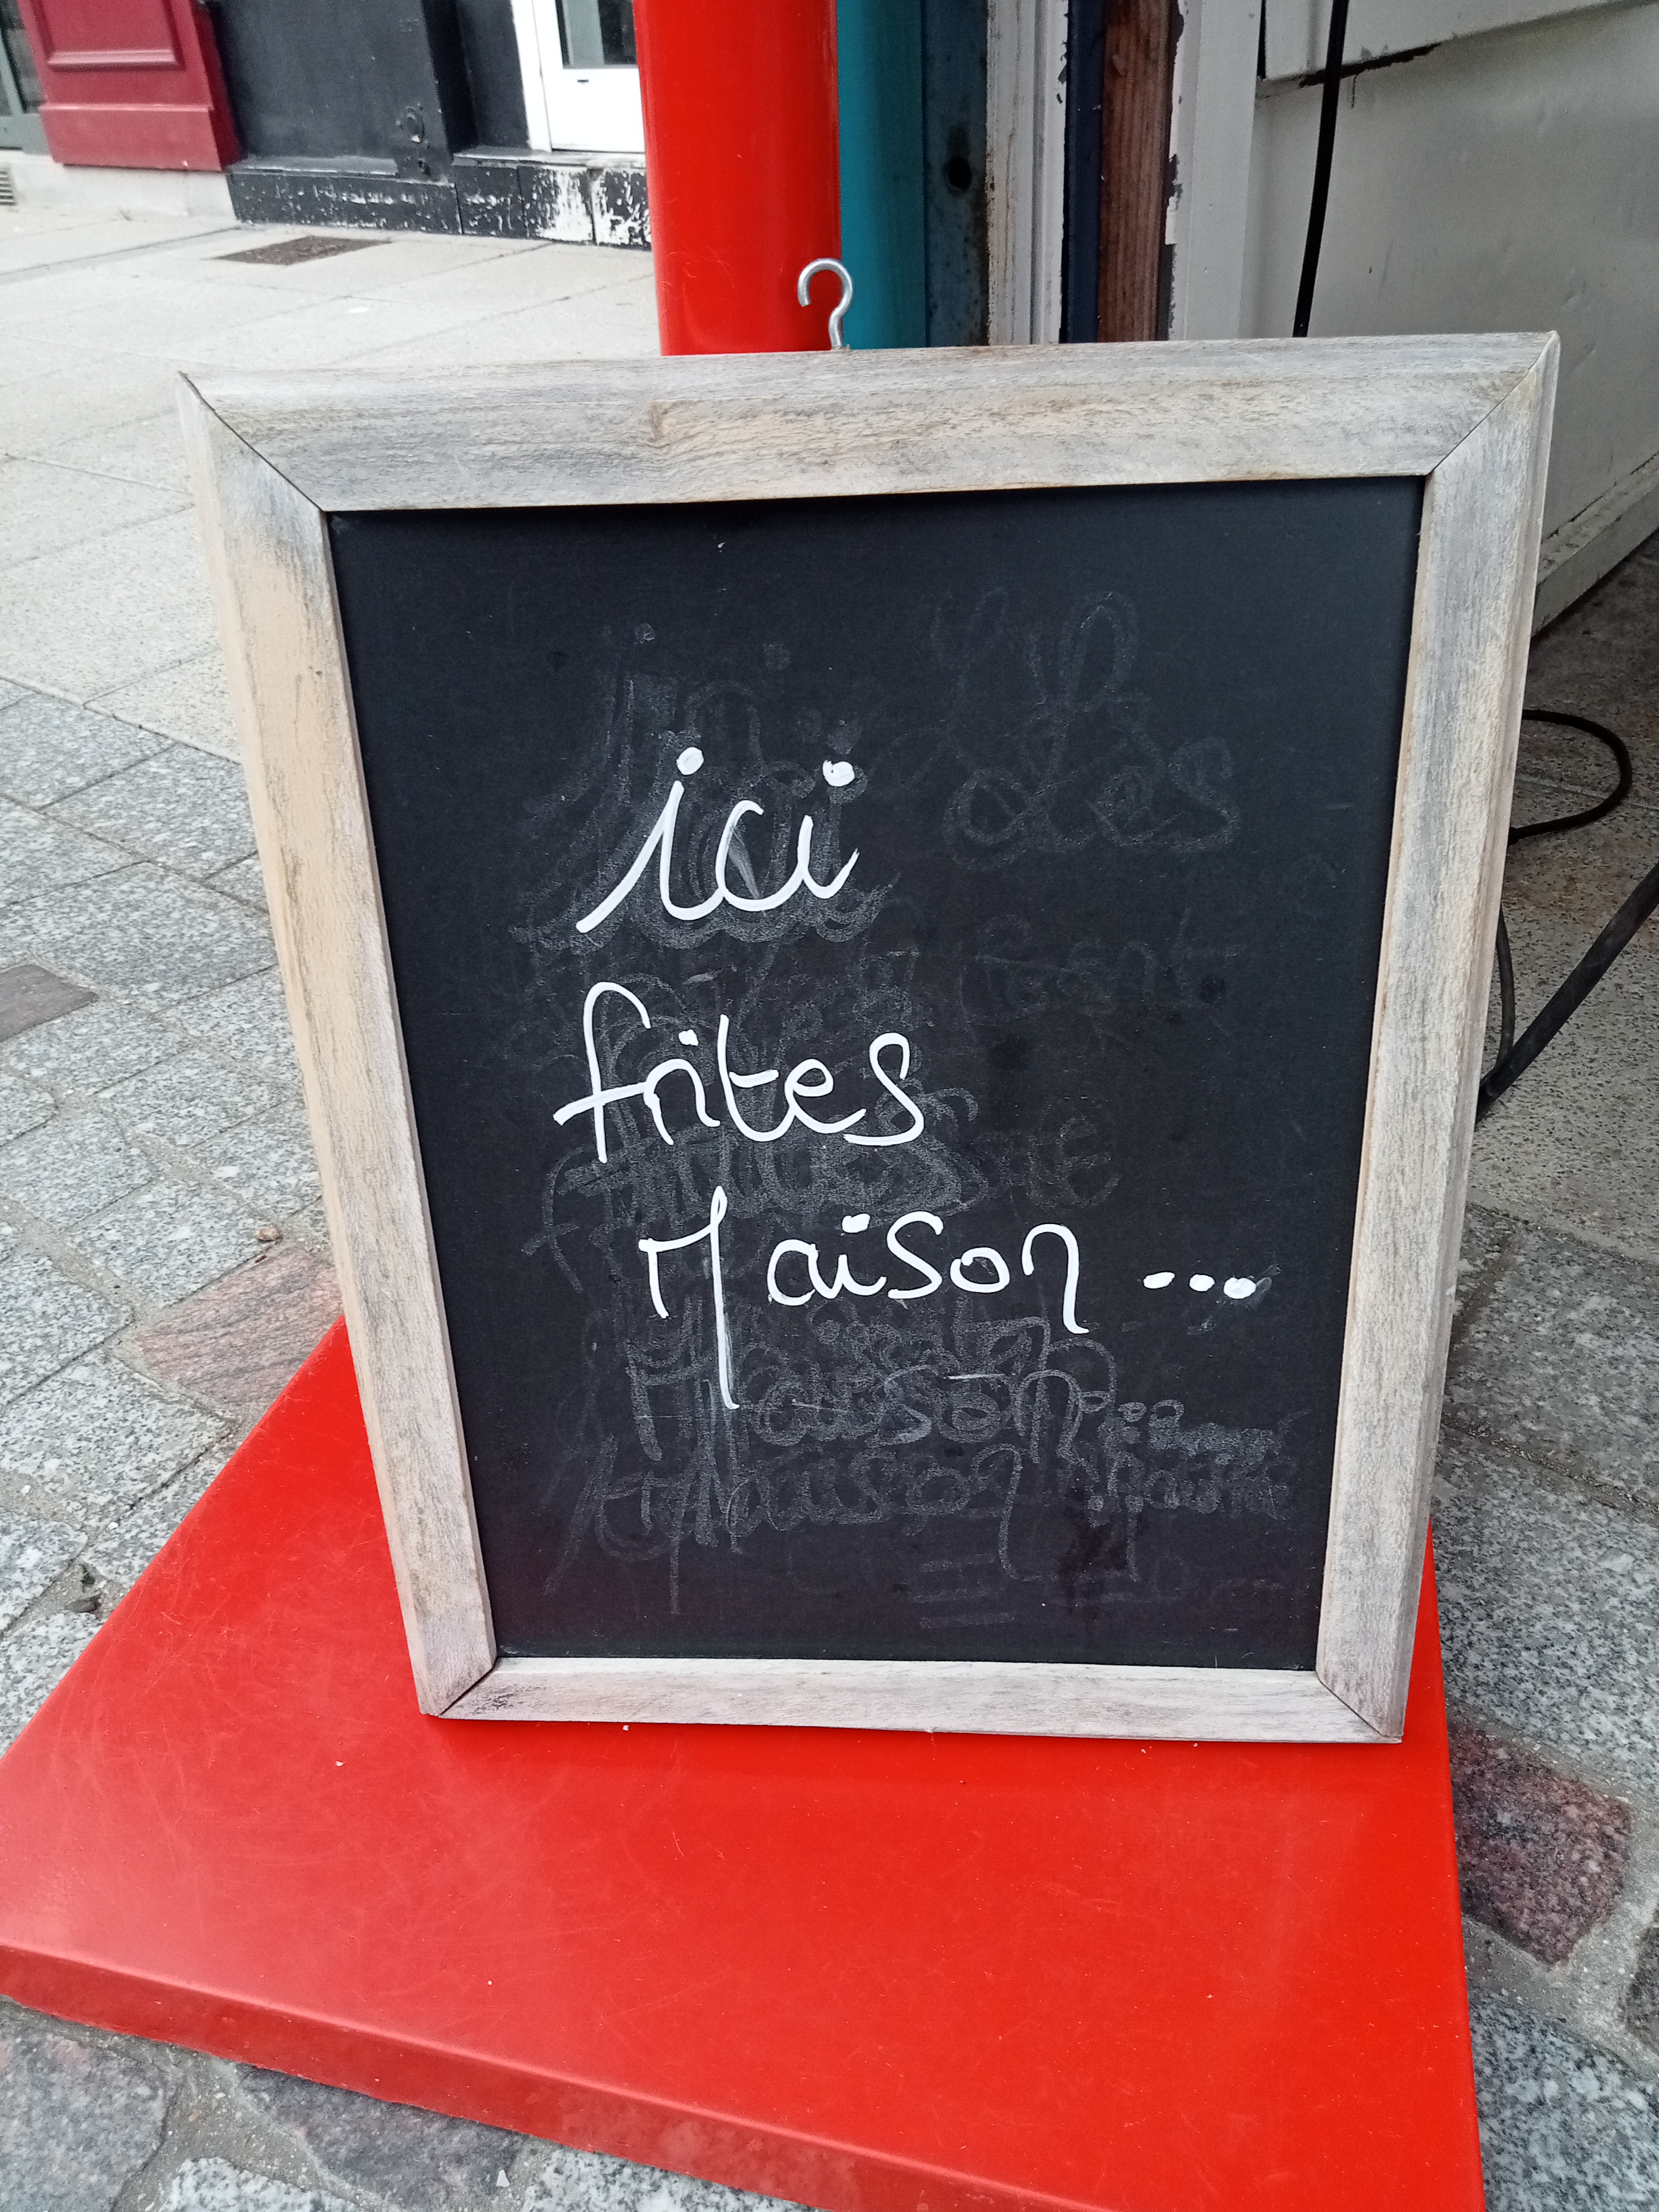 ici
frites
Maison...